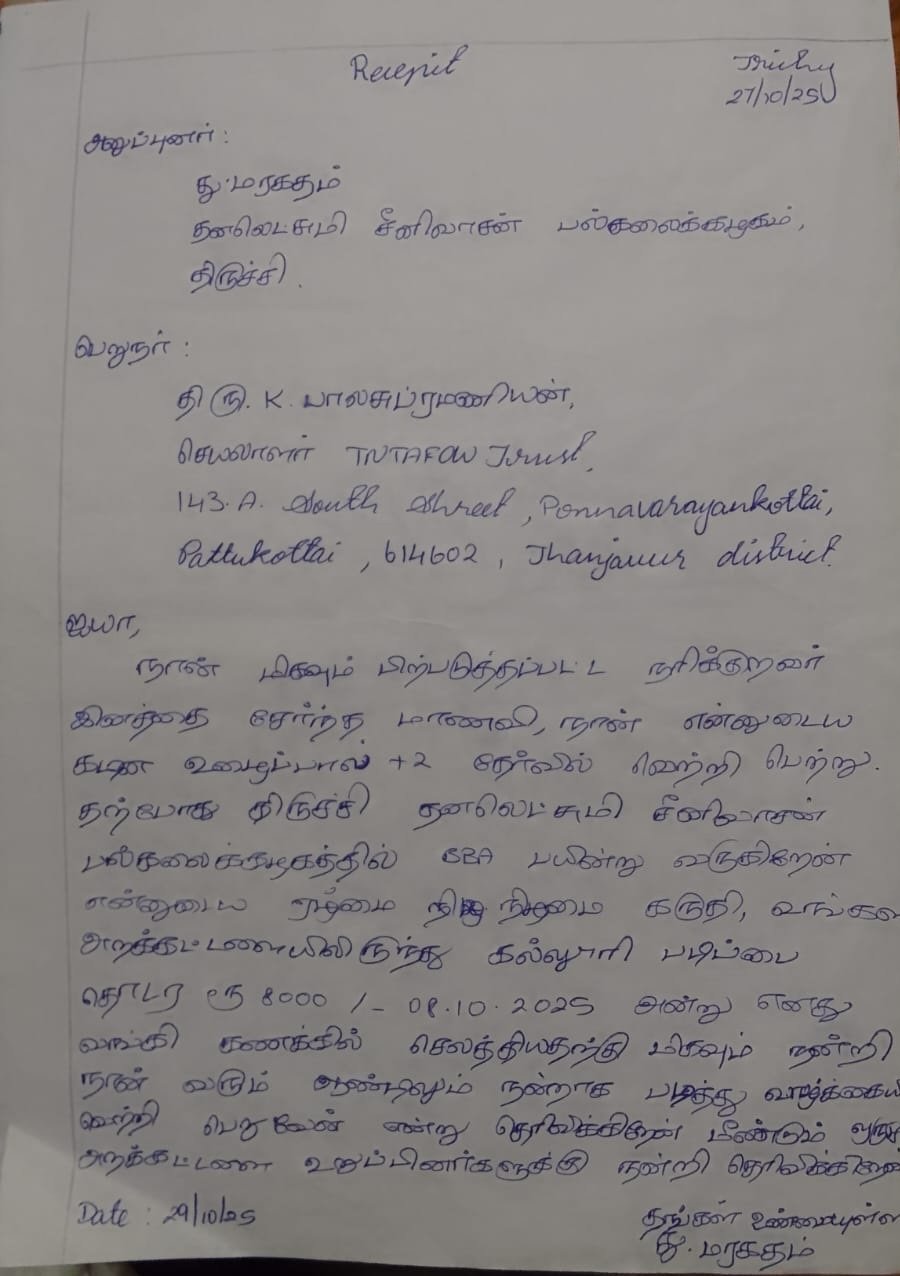 Recepit
Trichy
27/10/25
அனுப்புனர் :
து.மரகதம்
தனலெட்சுமி சீனிவாசன் பல்கலைக்கழகம்,
திருச்சி.
பெறுநர் :
திரு. K. பாலசுப்ரமணியன்,
செயலாளர் TNTAFOW Trust,
143.A. South Street, Ponnavarayankottai,
Pattukottai, 614602, Thanjavur district.
ஐயா,
நான் மிகவும் பிற்படுத்தப்பட்ட நரிக்குறவர்
இனத்தை சேர்ந்த மாணவி, நான் என்னுடைய
கடின உழைப்பால் +2 தேர்வில் வெற்றி பெற்று.
தற்போது திருச்சி தனலெட்சுமி சீனிவாசன்
பல்கலைக்கழகத்தில் BBA பயின்று வருகிறேன்
என்னுடைய ஏழ்மை நிலைமை கருதி,
அறக்கட்டளையிலிருந்து கல்லூரி படிப்பை
தொடர ரூ 8000 /- 08.10.2025 அன்று எனது
வங்கி கணக்கில் செலுத்தியதற்கு மிகவும் நன்றி
நான் வரும் ஆண்டிலும் நன்றாக படித்து
வெற்றி பெறுவேன் என்று தெரிவிக்கிறேன் மீண்டும்
அறக்கட்டளை உறுப்பினர்களுக்கு நன்றி
Date : 29/10/25
தங்கள் உண்மையுள்ள
து. மரகதம்